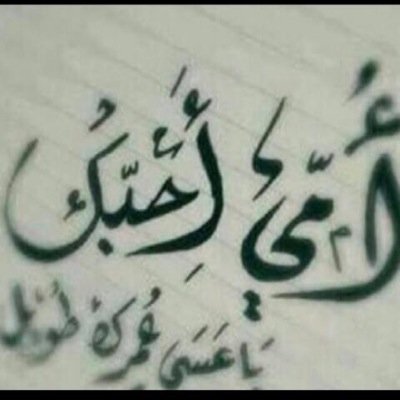 أُمّي أُحِبّكُ
يَا عَسَى عُمركْ طُويل